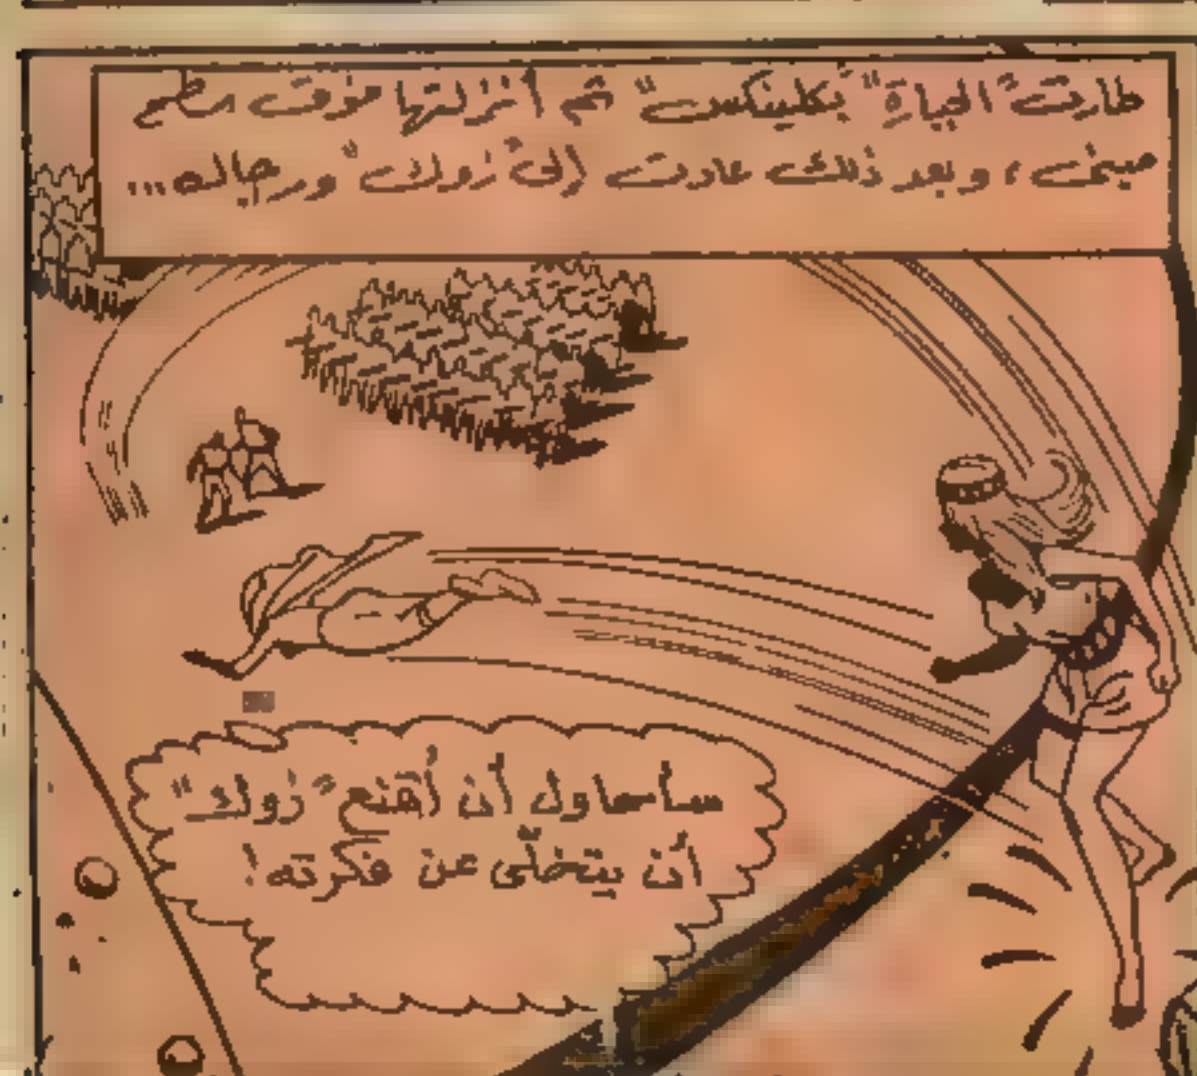 طارت "الحياة" بكلينكس" ثم أنزلتها فوق سطح
مبنى، وبعد ذلك عادت إلى "زولك" ورجاله...
سأحاول أن أقنع "زولك"
أن يتخلّى عن فكرته!